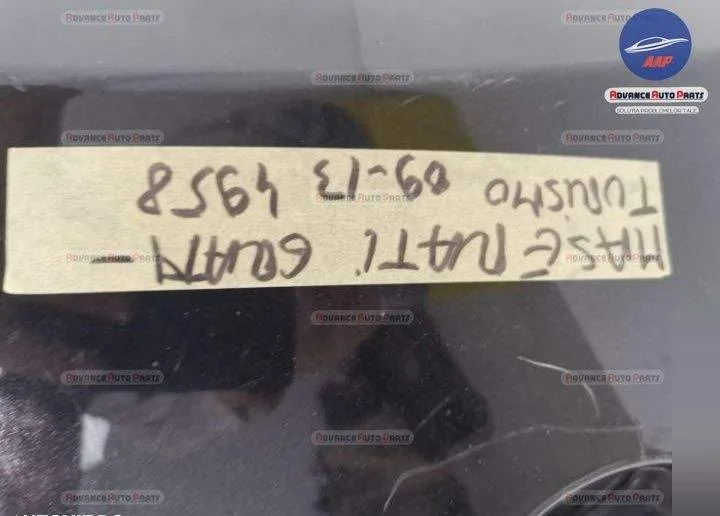 AAP
ADVANCE AUTO PARTS
SOLUTIA PROBLEMELOR TALE
MASERATI GRAN -
TURISMO 09-13 4958
ADVANCE AUTO PARTS
ADVANCE AUTO PARTS
ADVANCE AUTO PARTS
ADVANCE AUTO PARTS
ADVANCE AUTO PARTS
ADVANCE AUTO PARTS
ADVANCE AUTO PARTS
ADVANCE AUTO PARTS
ADVANCE AUTO PARTS
ADVANCE AUTO PARTS
ADVANCE AUTO PARTS
ADVANCE AUTO PARTS
ADVANCE AUTO PARTS
ADVANCE AUTO PARTS